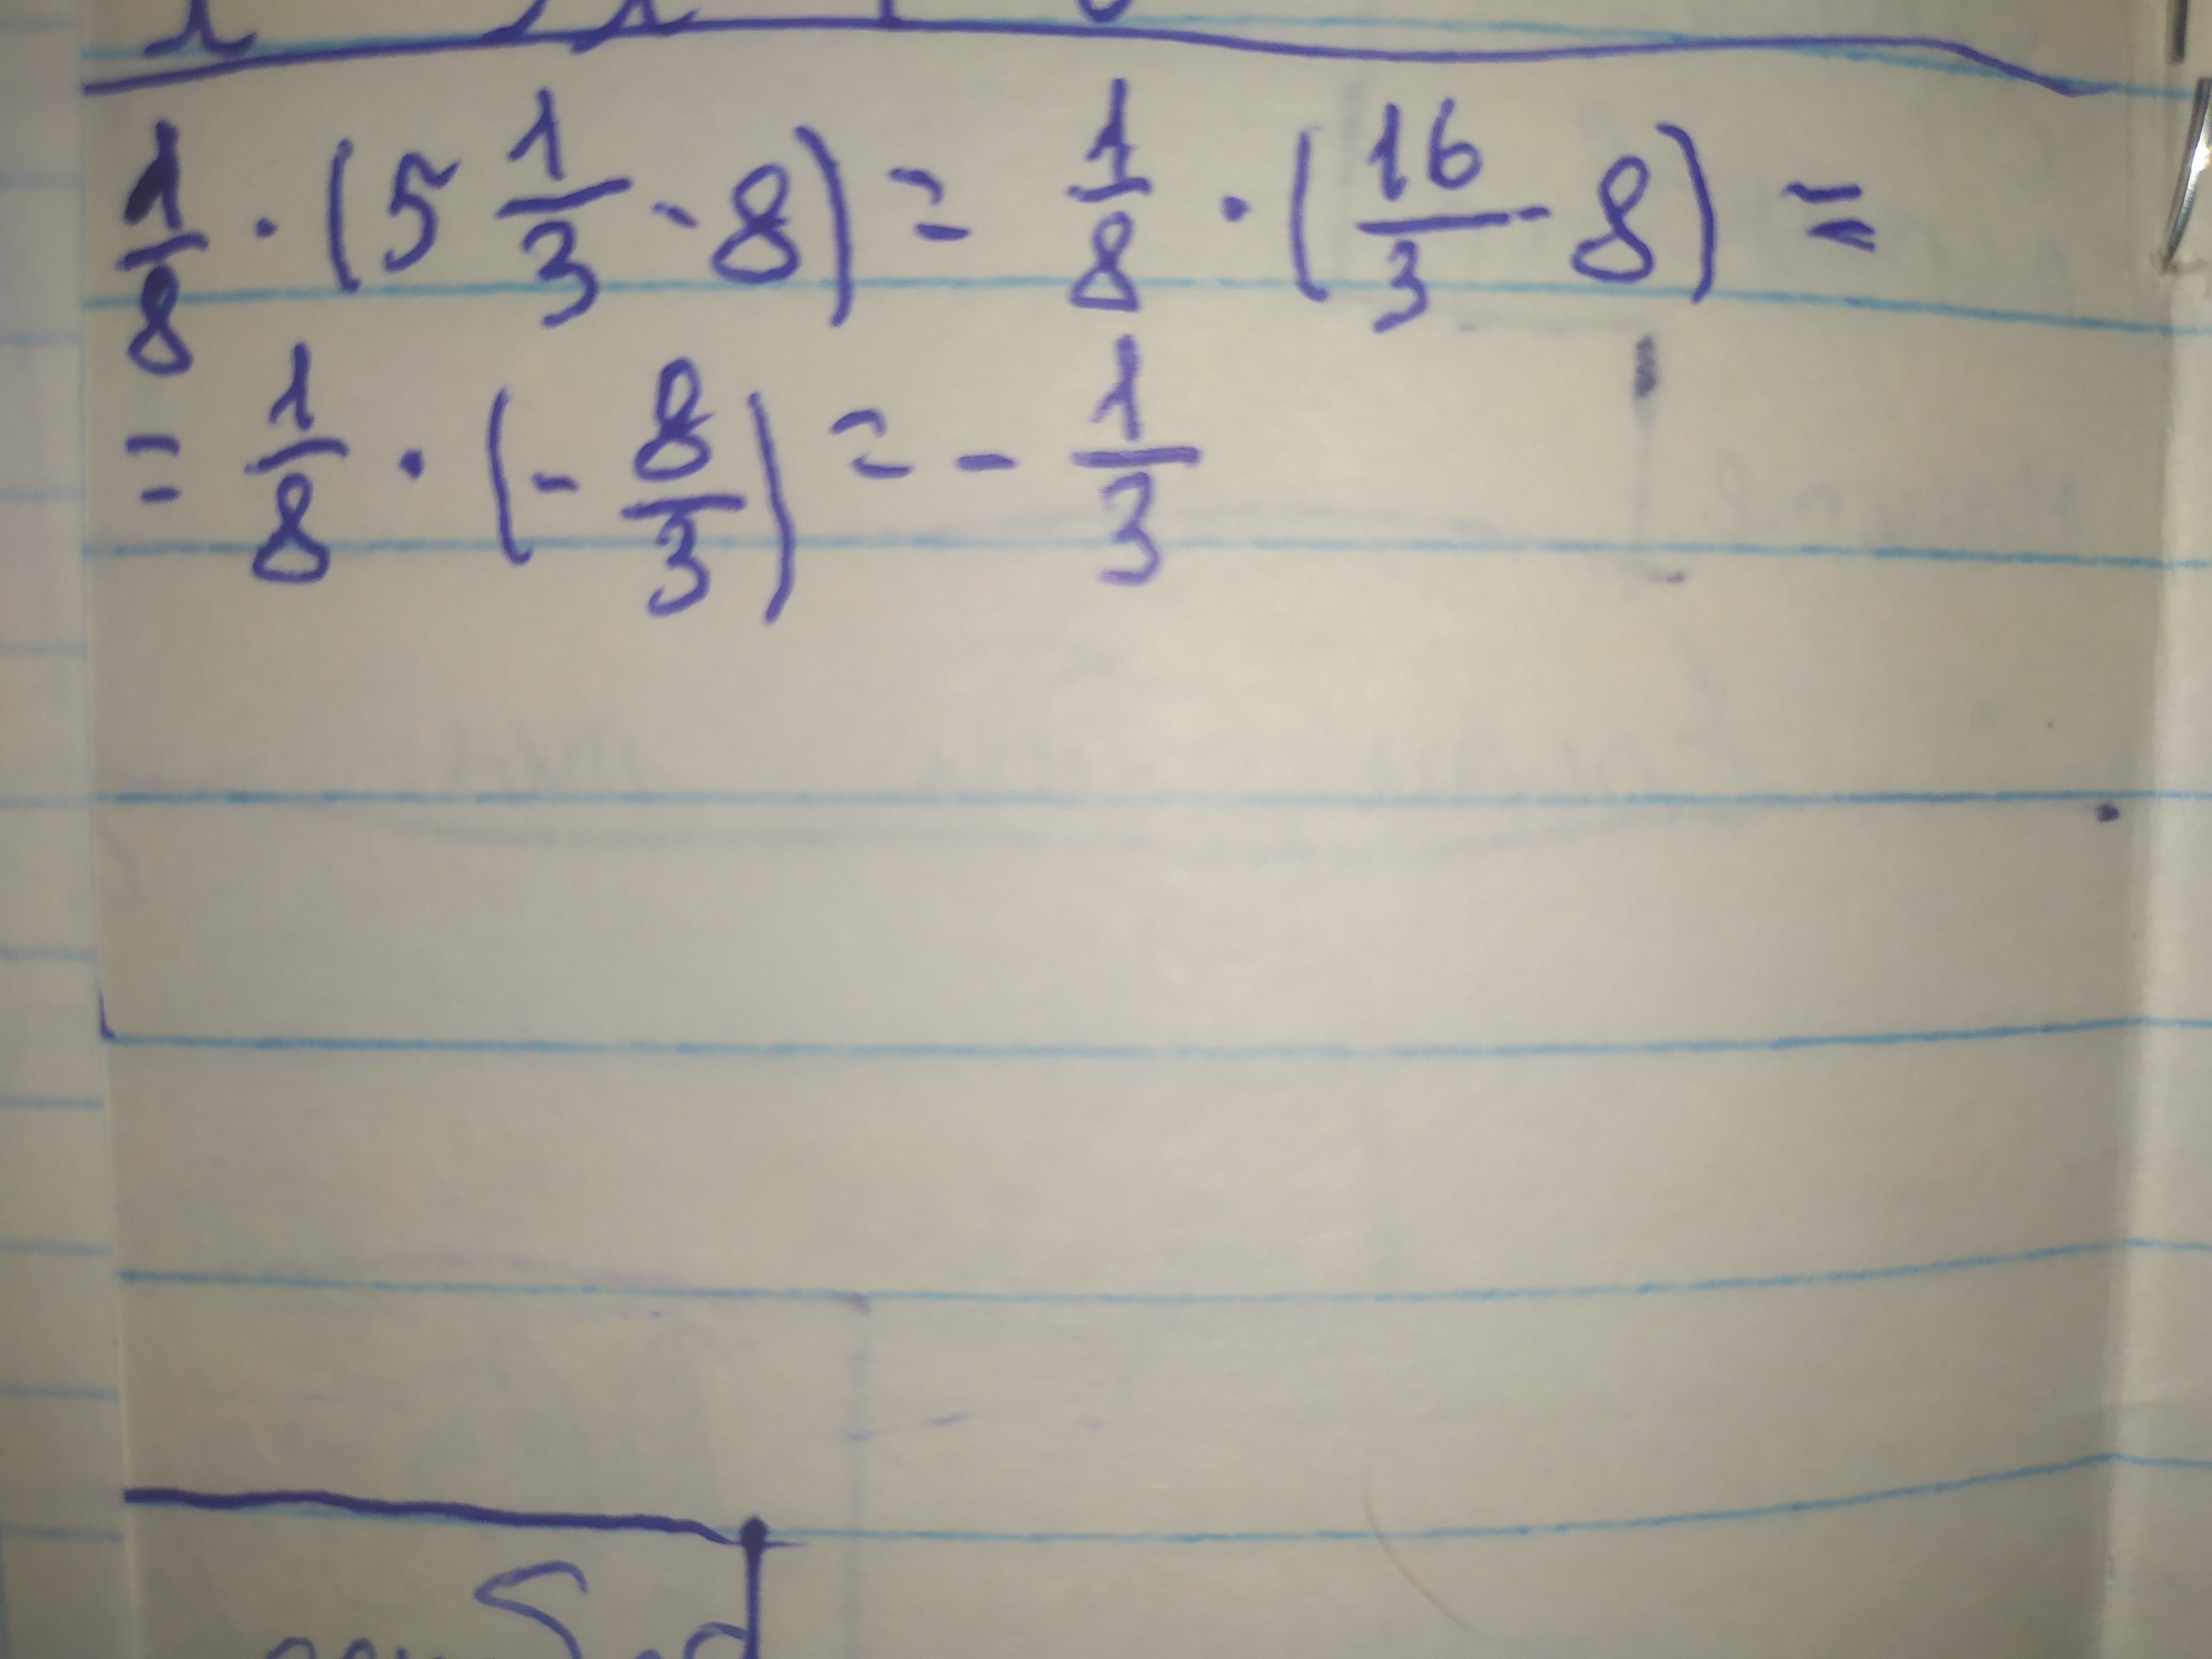 1/8 · (5 1/3 - 8) = 1/8 · (16/3 - 8) =
= 1/8 · (- 8/3) = - 1/3